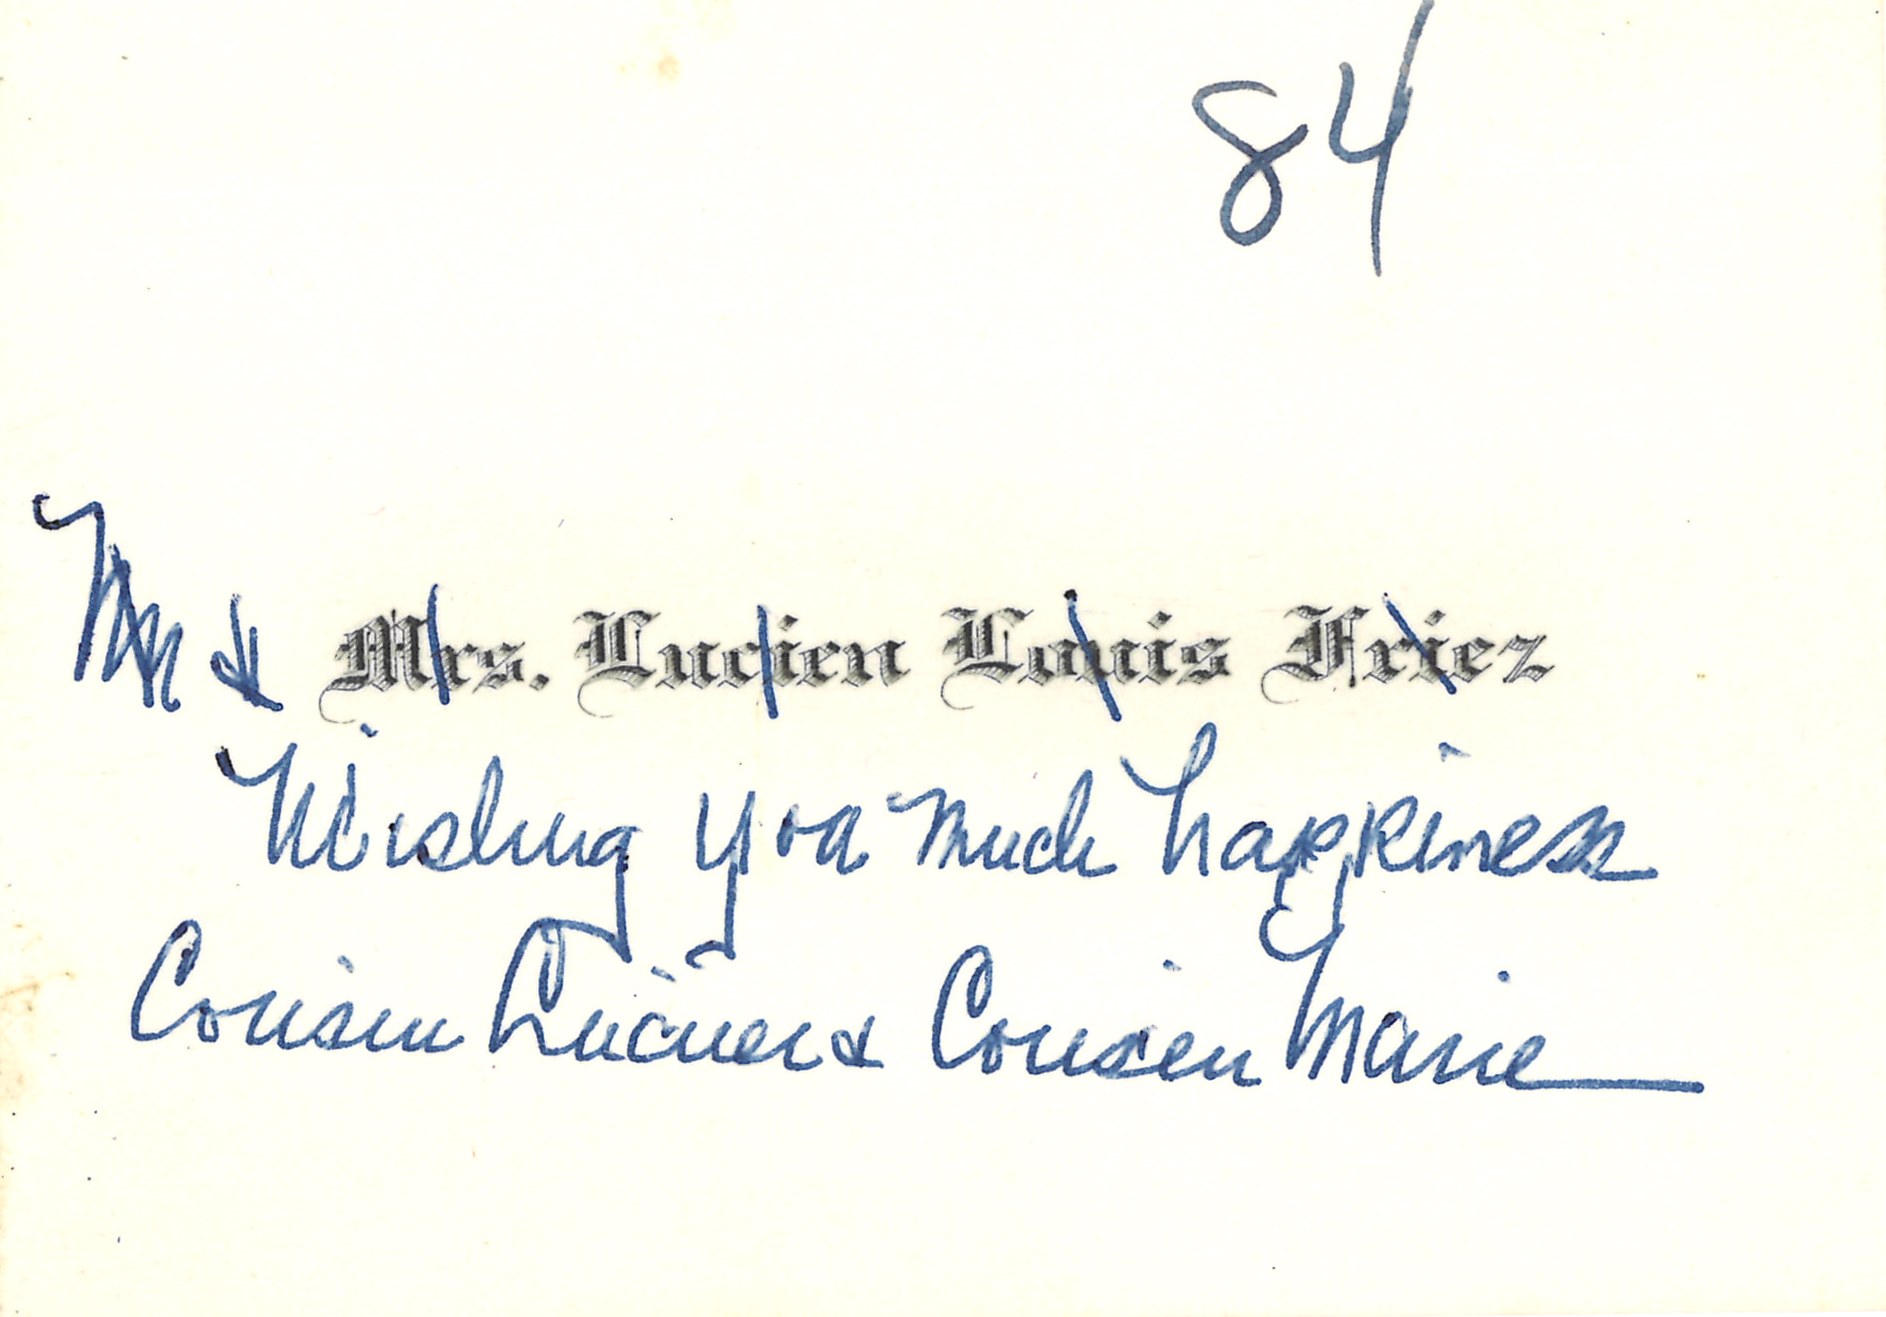 84
Mr & Mrs. Lucien Louis Friez
Wishing you much happiness
Cousin Lucien & Cousin Marie